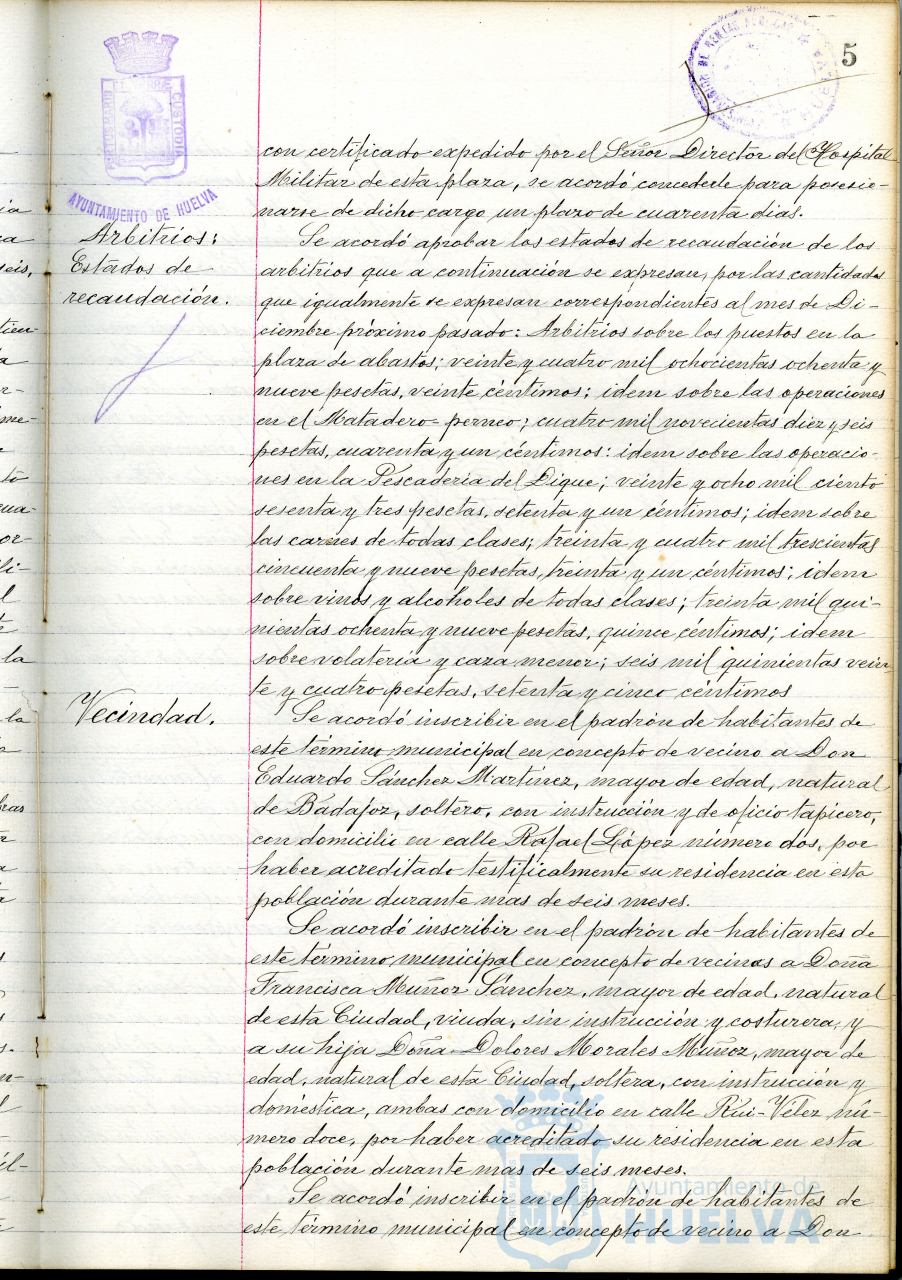 5
AYUNTAMIENTO DE HUELVA
con certificado expedido por el Señor Director del Hospital
Militar de esta plaza, se acordó concederle para posesio-
narse de dicho cargo un plazo de cuarenta dias.
Arbitrios:
Estados de
recaudación.
Se acordó aprobar los estados de recaudación de los
arbitrios que a continuación se expresan, por las cantidades
que igualmente se expresan correspondientes al mes de Di-
ciembre próximo pasado: Arbitrios sobre los puestos en la
plaza de abastos; veinte y cuatro mil ochocientas ochenta y
nueve pesetas, veinte céntimos; idem sobre las operaciones
en el Matadero-perneo; cuatro mil novecientas diez y seis
pesetas, cuarenta y un céntimos: idem sobre las operacio-
nes en la Pescaderia del Dique; veinte y ocho mil ciento
sesenta y tres pesetas, setenta y un céntimos; idem sobre
las carnes de todas clases; treinta y cuatro mil trescientas
cincuenta y nueve pesetas, treinta y un céntimos; idem
sobre vinos y alcoholes de todas clases; treinta mil qui-
nientas ochenta y nueve pesetas, quince céntimos; idem
sobre volatería y caza menor; seis mil quinientas vein-
te y cuatro pesetas, setenta y cinco céntimos
Vecindad.
Se acordó inscribir en el padrón de habitantes de
este término municipal en concepto de vecino a Don
Eduardo Sánchez Martínez, mayor de edad, natural
de Badajoz, soltero, con instrucción y de oficio tapicero,
con domicilio en calle Rafael López número dos, por
haber acreditado testificalmente su residencia en esta
población durante mas de seis meses.
Se acordó inscribir en el padrón de habitantes de
este término municipal en concepto de vecinas a Doña
Francisca Muñoz Sánchez, mayor de edad, natural
de esta Ciudad, viuda, sin instrucción y costurera, y
a su hija Doña Dolores Morales Muñoz, mayor de
edad, natural de esta Ciudad, soltera, con instrucción y
doméstica, ambas con domicilio en calle Rui-Velez nú-
mero doce, por haber acreditado su residencia en esta
población durante mas de seis meses.
Se acordó inscribir en el padrón de habitantes de
este término municipal en concepto de vecino a Don
Ayuntamiento de
HUELVA